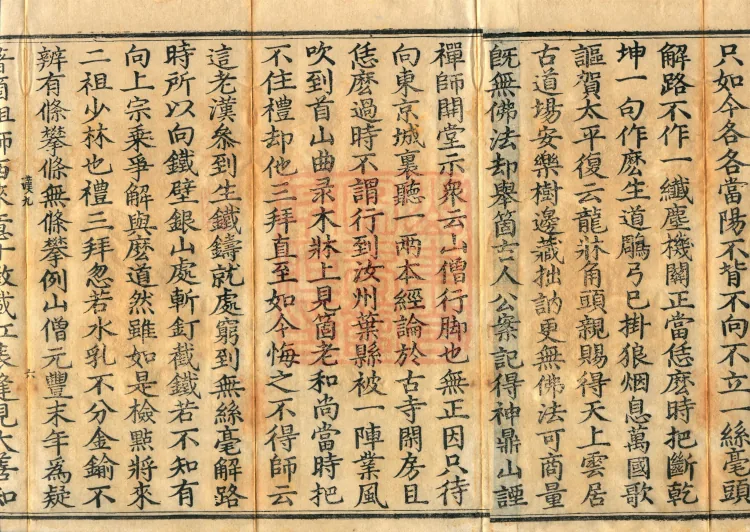 只如今各各當陽不背不向不立一絲毫頭
解路不作一纖塵機關正當恁麼時把斷乾
坤一句作麼生道鵰弓已掛狼烟息萬國歌
謳賀太平復云龍牀角頭親賜得天上雲居
古道場安樂樹邊藏拙訥更無佛法可商量
既無佛法却舉箇古人公案記得神鼎山諲
禪師開堂示衆云山僧行脚也無正因只待
向東京城裏聽一兩本經論於古寺閑房且
恁麼過時不謂行到汝州葉縣被一陣業風
吹到首山曲录木牀上見箇老和尚當時把
不住禮却他三拜直至如今悔之不得師云
這老漢叅到生鐵鑄就處窮到無絲毫解路
時所以向鐵壁銀山處斬釘截鐵若不知有
向上宗乘爭解與麼道然雖如是檢點將來
二祖少林也禮三拜忽若水乳不分金鍮不
辨有條攀條無條攀例山僧元豐末年爲疑
六